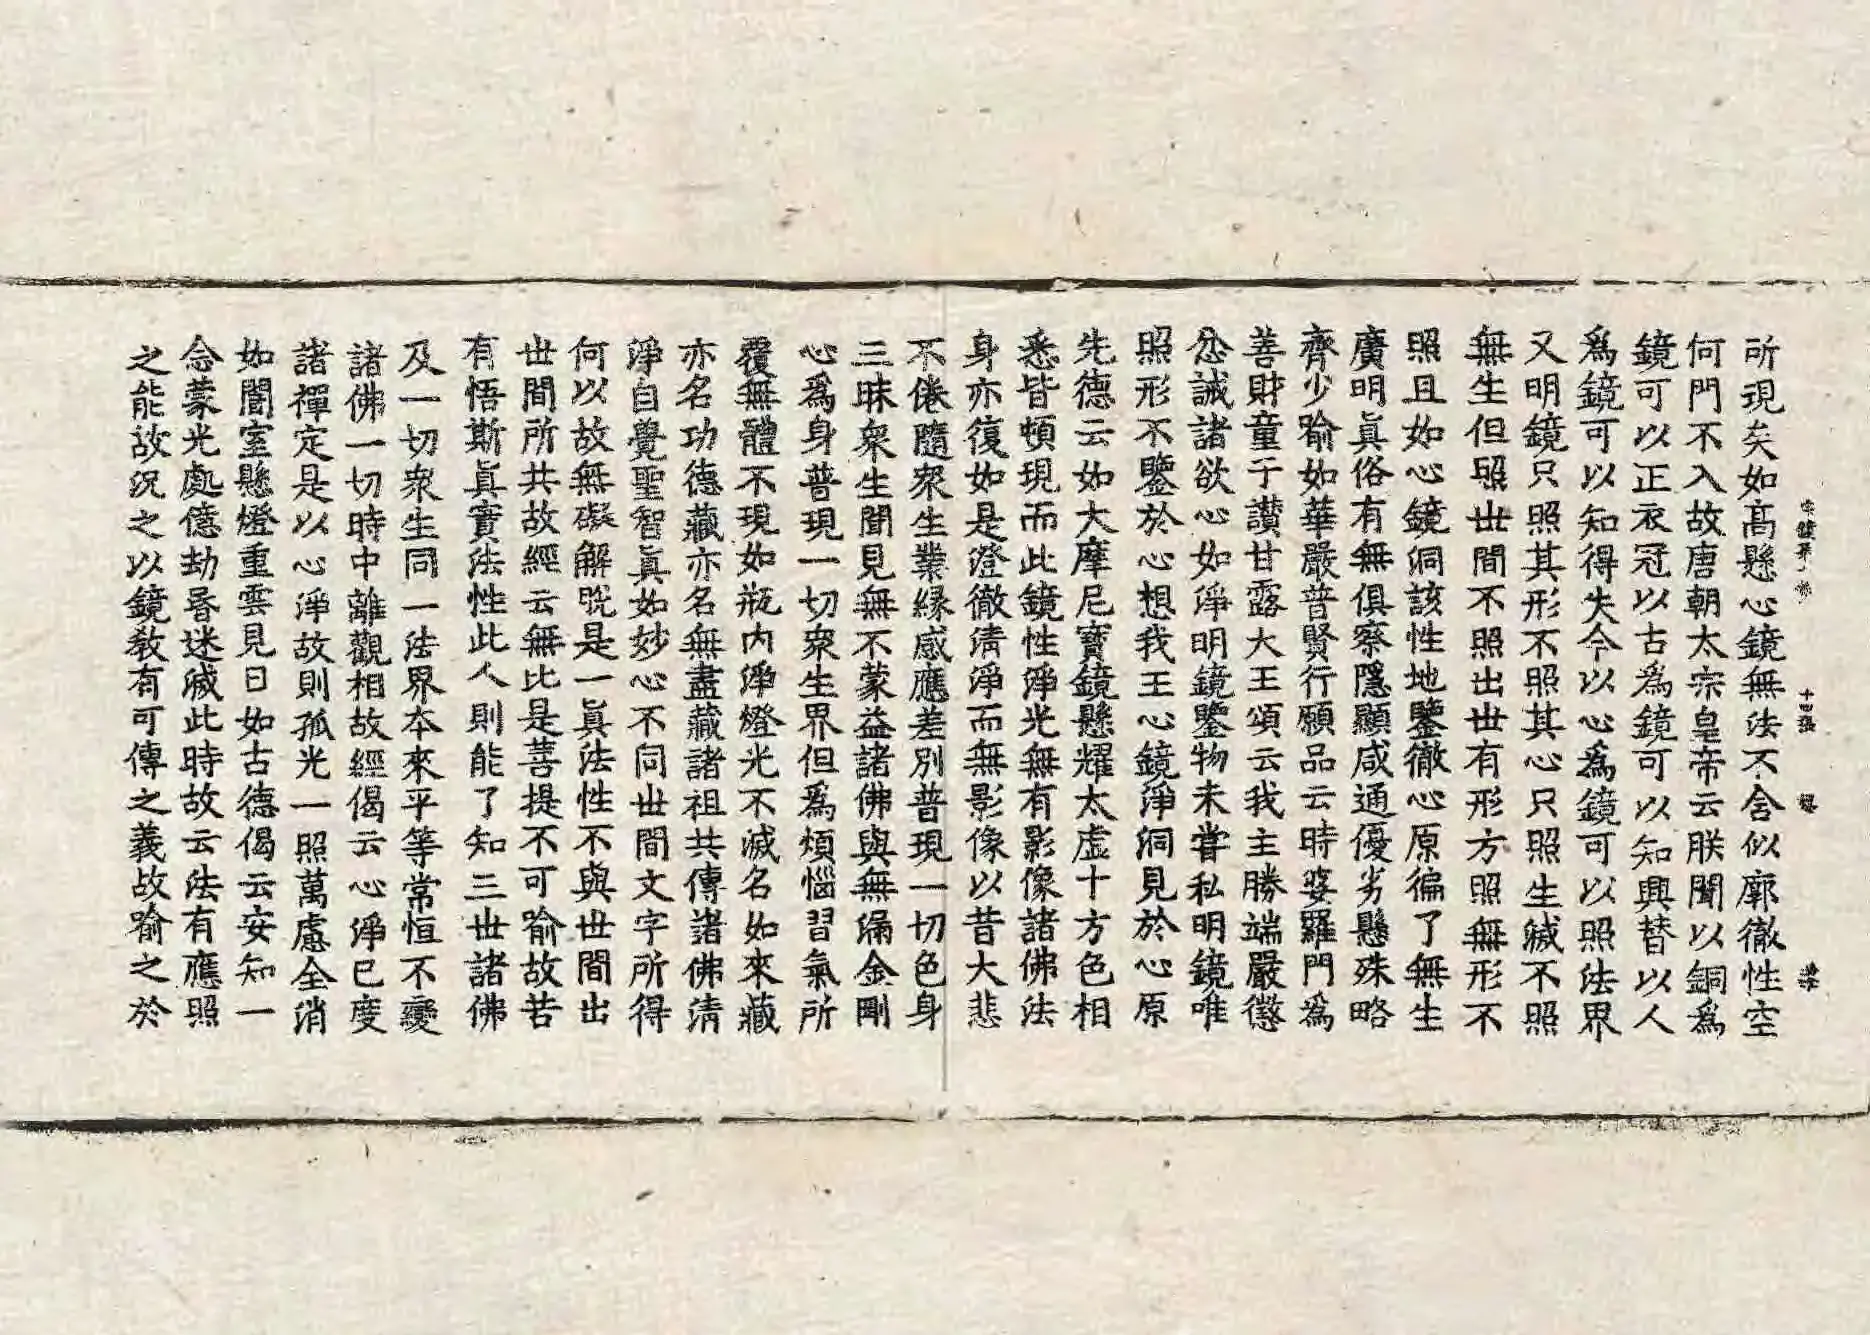 宗鏡第十 十四張
所現矣如高懸心鏡無法不含似廓徹性空
何門不入故唐朝太宗皇帝云朕聞以銅爲
鏡可以正衣冠以古爲鏡可以知興替以人
爲鏡可以知得失今以心爲鏡可以照法界
又明鏡只照其形不照其心只照生滅不照
無生但照世間不照出世有形方照無形不
照且如心鏡洞該性地鑒徹心原徧了無生
廣明眞俗有無俱察隱顯咸通優劣懸殊略
齊少喻如華嚴普賢行願品云時婆羅門爲
善財童子讃甘露大王頌云我主勝端嚴懲
忿誡諸欲心如淨明鏡鑒物未嘗私明鏡唯
照形不鑒於心想我王心鏡淨洞見於心原
先德云如大摩尼寶鏡懸耀太虛十方色相
悉皆頓現而此鏡性淨光無有影像諸佛法
身亦復如是澄徹清淨而無影像以昔大悲
不倦隨衆生業緣感應差別普現一切色身
三昧衆生聞見無不蒙益諸佛與無漏金剛
心爲身普現一切衆生界但爲煩惱習氣所
覆無體不現如瓶內淨燈光不滅名如來藏
亦名功德藏亦名無盡藏諸祖共傳諸佛清
淨自覺聖智眞如妙心不同世間文字所得
何以故無礙解脫是一眞法性不與世間出
世間所共故經云無比是菩提不可喻故若
有悟斯眞實法性此人則能了知三世諸佛
及一切衆生同一法界本來平等常恒不變
諸佛一切時中離觀相故經偈云心淨已度
諸禪定是以心淨故則孤光一照萬慮全消
如闇室懸燈重雲見日如古德偈云安知一
念蒙光處億劫昏迷滅此時故云法有應照
之能故況之以鏡敎有可傳之義故喻之於